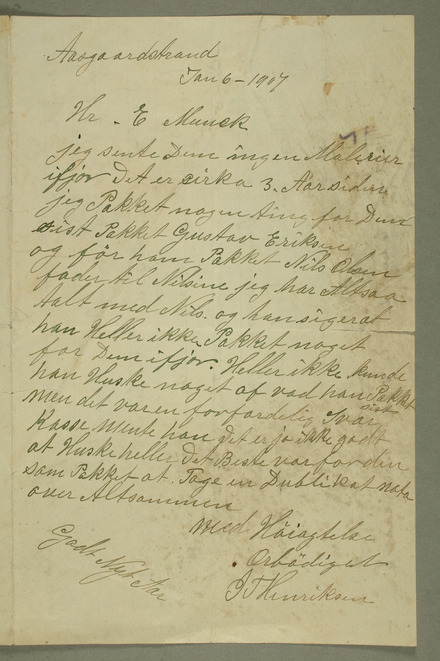 Aasgaardstrand
Jan 6 – 1907
Hr. E Munck
jeg sente Dem ingen Malerier
ifjor Det er sirka 3. Aar siden
jeg Pakket nogen ting for Dem
sist Pakket Gustav Eriksen
og før ham Pakket Nils Olsen
fader til Nilsine jeg har Altsaa
talt med Nils. og han siger at
han Heller ikke Pakket noget
for Dem ifjor. Heller ikke kunde
han Huske noget af vad han Pakket
sist
men det var en forfærdelig Svær
Kasse Mente han det er jo ikke godt
at Huske heller Det Beste var for den
som Pakket at Tage en Dublikat nota
over Altsammen
med Høiagtelse
Ørbödigst
Godt Nyt Aar
Henriksen